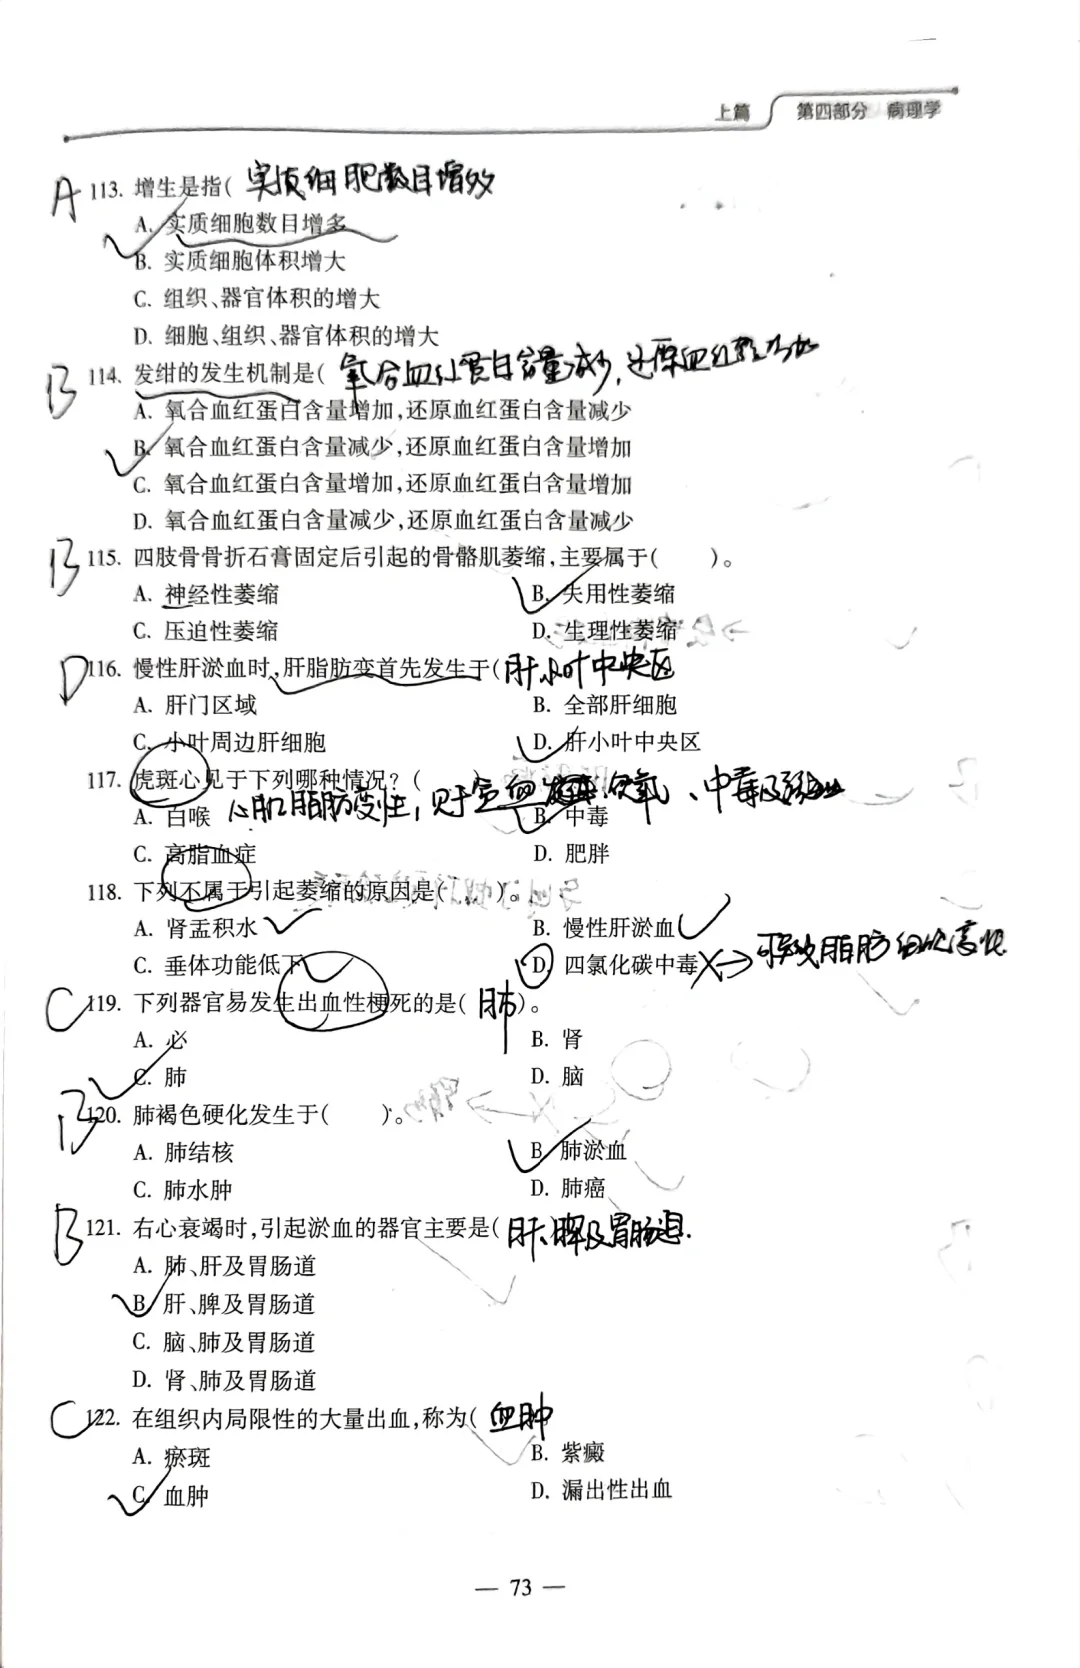 上篇 第四部分 病理学
A 113. 增生是指( 实质细胞数目增多
A. 实质细胞数目增多
B. 实质细胞体积增大
C. 组织、器官体积的增大
D. 细胞、组织、器官体积的增大
B 114. 发绀的发生机制是( 氧合血红蛋白含量减少,还原血红
A. 氧合血红蛋白含量增加,还原血红蛋白含量减少
B. 氧合血红蛋白含量减少,还原血红蛋白含量增加
C. 氧合血红蛋白含量增加,还原血红蛋白含量增加
D. 氧合血红蛋白含量减少,还原血红蛋白含量减少
B 115. 四肢骨骨折石膏固定后引起的骨骼肌萎缩,主要属于( )。
A. 神经性萎缩 B. 失用性萎缩
C. 压迫性萎缩 D. 生理性萎缩
D 116. 慢性肝淤血时,肝脂肪变首先发生于( 肝小叶中央区
A. 肝门区域 B. 全部肝细胞
C. 小叶周边肝细胞 D. 肝小叶中央区
117. 虎斑心见于下列哪种情况? (
心肌脂肪变性,见于贫血 缺氧、中毒及
A. 白喉 B. 中毒
C. 高脂血症 D. 肥胖
118. 下列不属于引起萎缩的原因是( )。
A. 肾盂积水 B. 慢性肝淤血
C. 垂体功能低下 D. 四氯化碳中毒 → 可导致脂肪
C 119. 下列器官易发生出血性梗死的是( 肺 )。
A. 心 B. 肾
C. 肺 D. 脑
B 120. 肺褐色硬化发生于( )。
A. 肺结核 B. 肺淤血
C. 肺水肿 D. 肺癌
B 121. 右心衰竭时,引起淤血的器官主要是( 肝、脾及胃肠道.
A. 肺、肝及胃肠道
B. 肝、脾及胃肠道
C. 脑、肺及胃肠道
D. 肾、肺及胃肠道
C 122. 在组织内局限性的大量出血,称为( 血肿
A. 瘀斑 B. 紫癜
C. 血肿 D. 漏出性出血
— 73 —